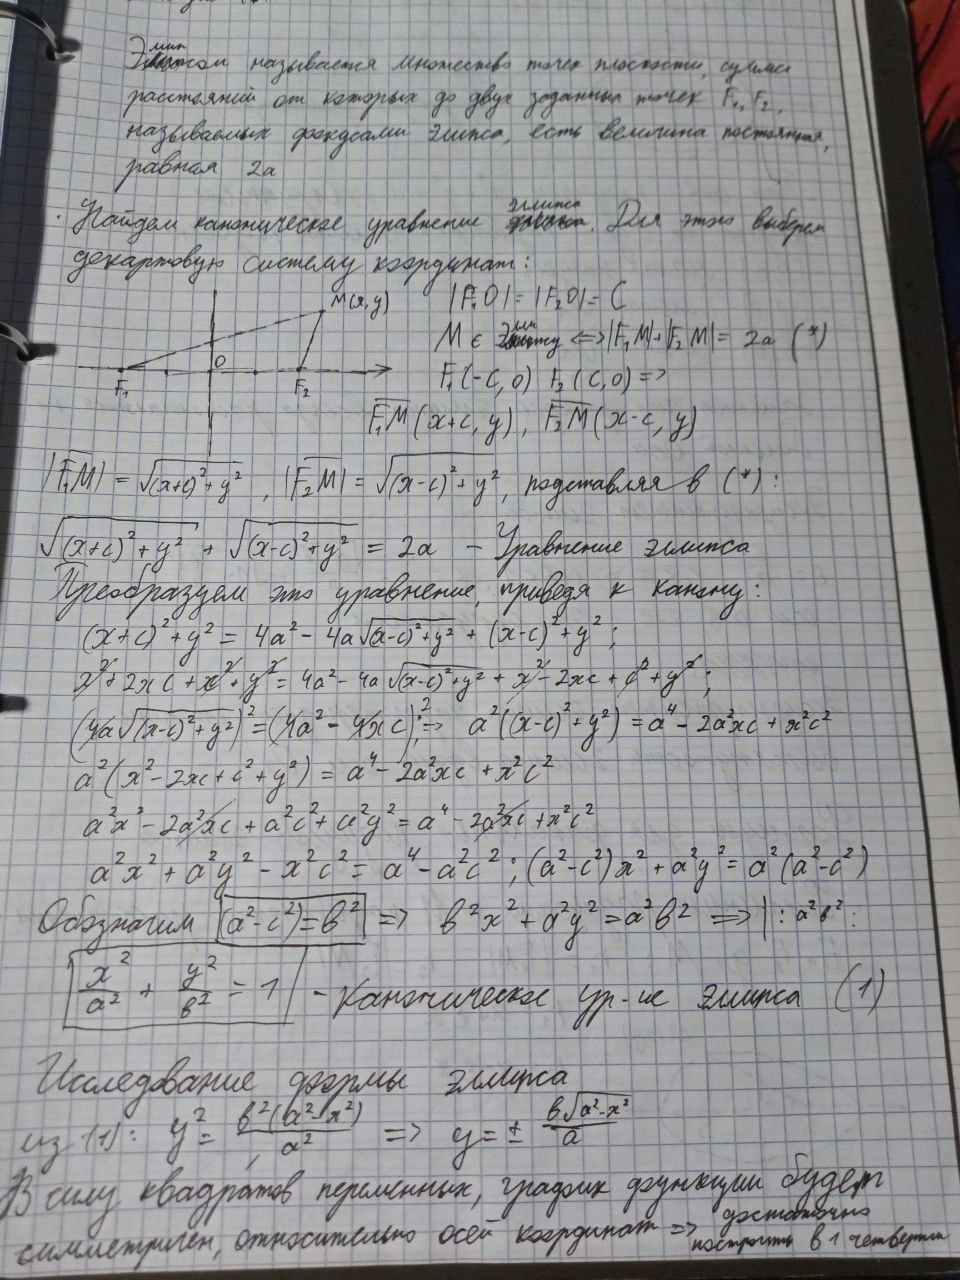 Эллипсом называется множество точек плоскости, сумма
расстояний от которых до двух заданных точек F₁, F₂,
называемых фокусами эллипса, есть величина постоянная,
равная 2a
Найдем каноническое уравнение эллипса. Для этого выберем
декартовую систему координат:
M(x,y)
O
F₁ F₂
|F₁O| = |F₂O| = C
M ∈ эллипсу <=> |F₁M|+|F₂M| = 2a (*)
F₁(-C,0) F₂(C,0) =>
F₁M(x+c, y), F₂M(x-c, y)
|F₁M| = √((x+c)²+y²), |F₂M| = √((x-c)²+y²), подставляя в (*):
√((x+c)²+y²) + √((x-c)²+y²) = 2a - Уравнение эллипса
Преобразуем это уравнение, приведя к канону:
(x+c)²+y² = 4a² - 4a√((x-c)²+y²) + (x-c)²+y²;
x²+2xc+x²+y² = 4a² - 4a√((x-c)²+y²) + x² - 2xc + c² + y²;
(4a√((x-c)²+y²))² = (4a² - 4xc)²; => a²((x-c)²+y²) = a⁴ - 2a²xc + x²c²
a²(x²-2xc+c²+y²) = a⁴ - 2a²xc + x²c²
a²x² - 2a²xc + a²c² + a²y² = a⁴ - 2a²xc + x²c²
a²x² + a²y² - x²c² = a⁴ - a²c²; (a²-c²)x² + a²y² = a²(a²-c²)
Обозначим (a²-c²)=b² => b²x² + a²y² = a²b² => |: a²b²:
x²/a² + y²/b² = 1 - Каноническое ур-ие эллипса (1)
Исследование формы эллипса
из (1): y² = b²(a²-x²)/a² => y = ± b√(a²-x²)/a
В силу квадратов переменных, график функции будет
симметричен, относительно осей координат => достаточно
построить в 1 четверти